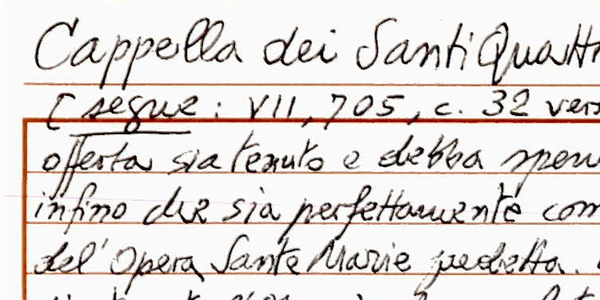 Cappella dei Santi Quatt
[segue: VII, 705, c. 32 vers
offerta sia tenuto e debba spen
infino che sia perfettamente com
del' Opera Sante Marie predetta.